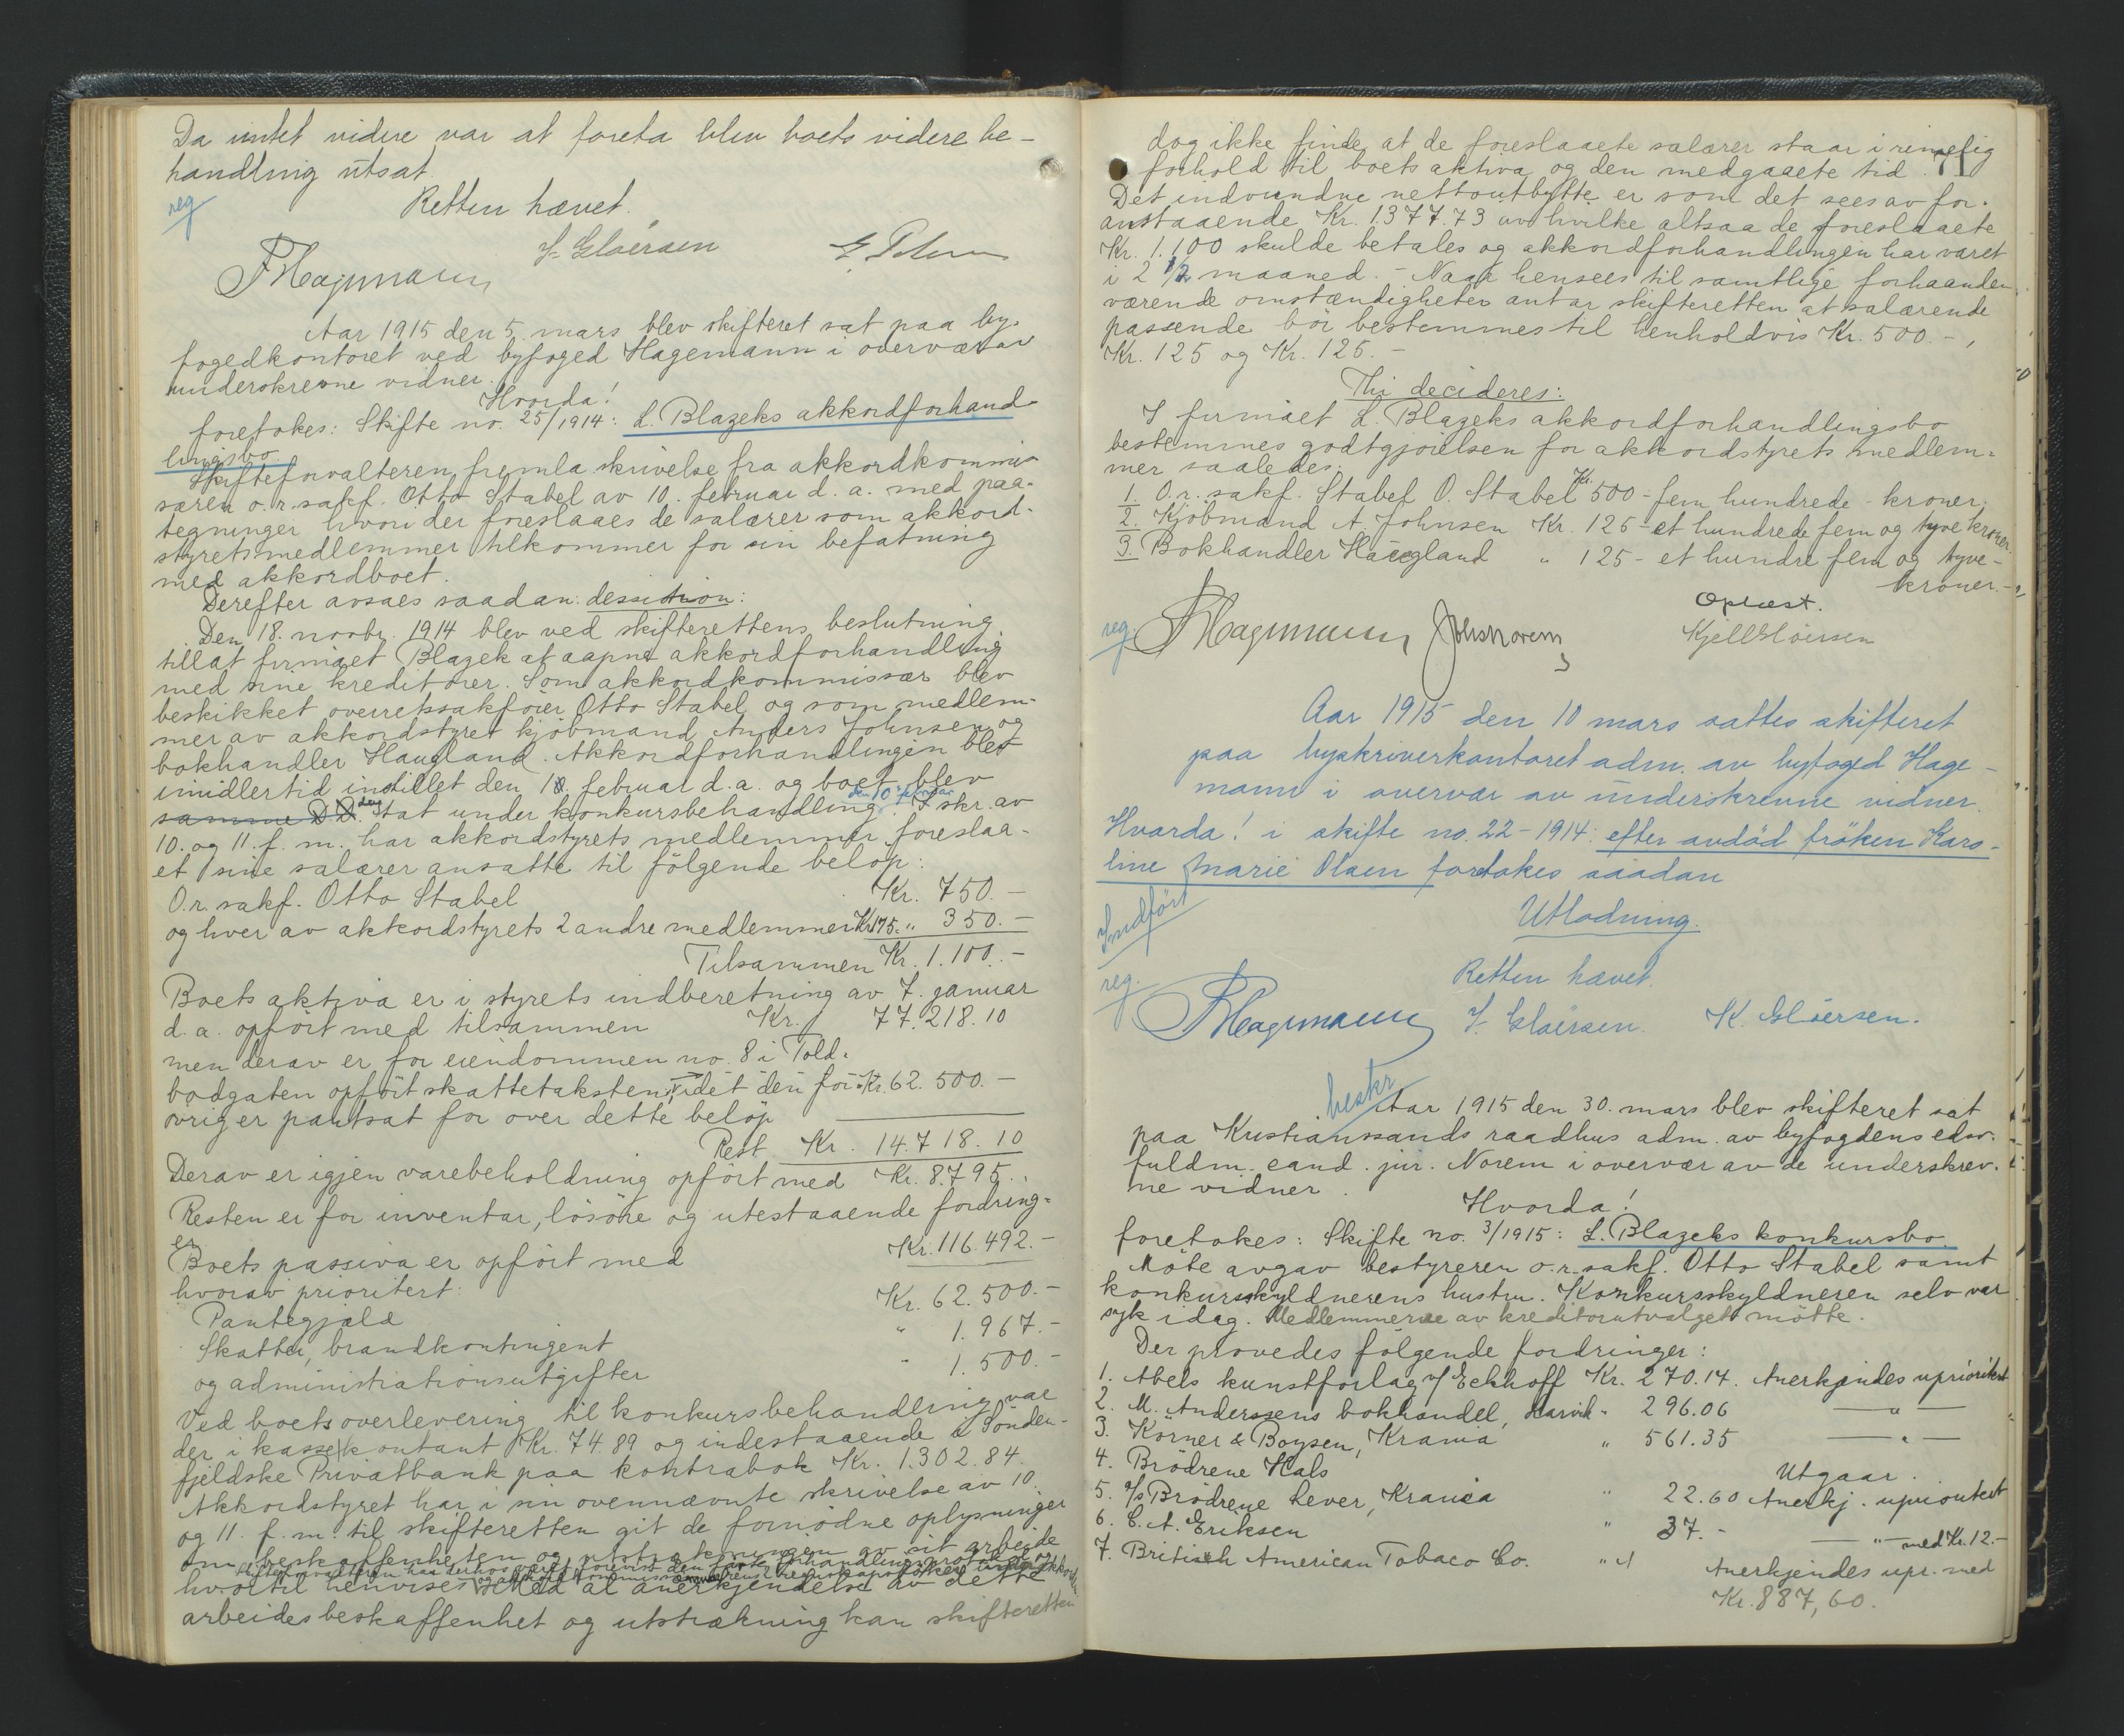 Da intet videre var at foreta blev boets videre be-
handling utsat.
reg
Retten hævet.
FHagemann
F. Gloersen
Aar 1915 den 5. mars blev skifteret sat paa by-
fogedkontoret ved byfoged Hagemann i overvær av
underskrevne vidner.
Hvorda!
foretokes: Skifte no. 25/1914: L. Blazeks akkordforhand-
lingsbo.
Skifteforvalteren fremla skrivelse fra akkordkommis-
særen o.r.sakf. Otto Stabel av 10. februar d.a. med paa-
tegninger hvori der foreslaaes de salærer som akkord-
styrets medlemmer tilkommer for sin befatning
med akkordboet.
Derefter avsaes saadan: dessision:
Den 18. novbr. 1914 blev ved skifterettens beslutning
tillat firmaet Blazek at aapne akkordforhandling
med sine kreditorer. Som akkordkommissær blev
beskikket overretssakfører Otto Stabel og som medlem-
mer av akkordstyret kjøbmand Anders Johnsen og
bokhandler Haugland. Akkordforhandlingen blev
imidlertid indstillet den 10. februar d.a. og boet blev
samme D.D. tat under konkursbehandling den 10. februar. I skr. av
10. og 11. f.m. har akkordstyrets medlemmer foreslaa-
et sine salærer ansatte til følgende beløp:
O.r. sakf. Otto Stabel Kr. 750.-
og hver av akkordstyrets 2 andre medlemmer Kr 175.- " 350.-
Tilsammen Kr. 1.100.-
Boets aktiva er i styrets indberetning av 7. januar
d.a. opført med tilsammen Kr. 77.218.10
men derav er for eiendommen no. 8 i Told-
bodgaten opført skattetaksten, idet den for- Kr. 62.500.-
øvrig er pantsat for over dette beløp
Rest Kr. 14.718.10
Derav er igjen varebeholdning opført med Kr. 8.795.-
Resten er for inventar, løsøre og utestaaende fordring-
er
Boets passiva er opført med Kr. 116.492.-
hvorav prioritert:
Pantegjæld Kr. 62.500.-
Skatter, brandkontingent " 1.967.-
og administrationsutgifter " 1.500.-
Ved boets overlevering til konkursbehandling var
der i kasse kontant Kr. 74.89 og indestaaende i Sønden-
fjeldske Privatbank paa kontrabok Kr. 1.302.84.
Akkordstyret har i sin ovennævnte skrivelse av 10.
og 11. f.m. til skifteretten git de fornødne oplysninger
om beskaffenheten og utstrækningen av sit arbeide
hvortil henvises. Med al anerkjendelse av dette
arbeides beskaffenhet og utstrækning kan skifteretten
dog ikke finde at de foreslaaete salærer staar i rimelig
forhold til boets aktiva og den medgaaete tid.
Det indvundne nettoutbytte er som det sees av for-
anstaaende Kr. 1.377.73 av hvilke altsaa de foreslaaete
Kr. 1.100 skulde betales og akkordforhandlingen har varet
i 2 1/2 maaned. - Naar hensees til samtlige forhaanden-
værende omstændigheter antar skifteretten at salærende
passende bør bestemmes til henholdvis Kr. 500.-,
Kr. 125 og Kr. 125.-
Thi decideres:
I firmaet L. Blazeks akkordforhandlingsbo
bestemmes godtgjørelsen for akkordstyrets medlem-
mer saaledes:
1. O.r. sakf. Stabel O. Stabel Kr. 500 - fem hundrede - kroner.
2. Kjøbmand A. Johnsen Kr. 125 - et hundrede fem og tyve kroner.
3. Bokhandler Haugland " 125 - et hundre fem og tyve-
kroner.-
Oplæst.
reg.
FHagemann
Johs Norem
Kjell Gloersen
Aar 1915 den 10 mars sattes skifteret
paa byskriverkontoret adm. av byfoged Hage-
mann i overvær av underskrevne vidner.
Hvorda! i skifte no. 22-1914: efter avdød frøken Karo-
line Marie Olsen foretokes saadan
Indført
Utlodning.
reg.
Retten hævet.
FHagemann
F. Gloersen.
K. Gloersen.
beskr
Aar 1915 den 30. mars blev skifteret sat
paa Kristianssands raadhus adm. av byfogdens edsv.
fuldm. cand. jur. Norem i overvær av de underskrev-
ne vidner.
Hvorda!
foretokes: Skifte no. 3/1915: L. Blazeks konkursbo.
Møte avgav bestyreren o.r.sakf. Otto Stabel samt
konkursskyldnerens hustru. Konkursskyldneren selv var
syk idag. Medlemmerne av kreditorutvalget møtte.
Der prøvedes følgende fordringer:
1. Abels kunstforlag v/ Eckhoff Kr. 270.14. Anerkjendes uprioritert
2. M. Anderssens bokhandel, Larvik " 296.06 — " —
3. Körner & Boysen, Krania " 561.35 — " —
4. Brødrene Hals Utgaar.
5. A/s Brødrene Lever, Krania " 22.60 Anerkj. uprioritert
6. C. A. Eriksen " 37.- — " — med Kr. 12.-
7. British American Tobaco Co. " Anerkjendes upr. med
Kr. 887,60.